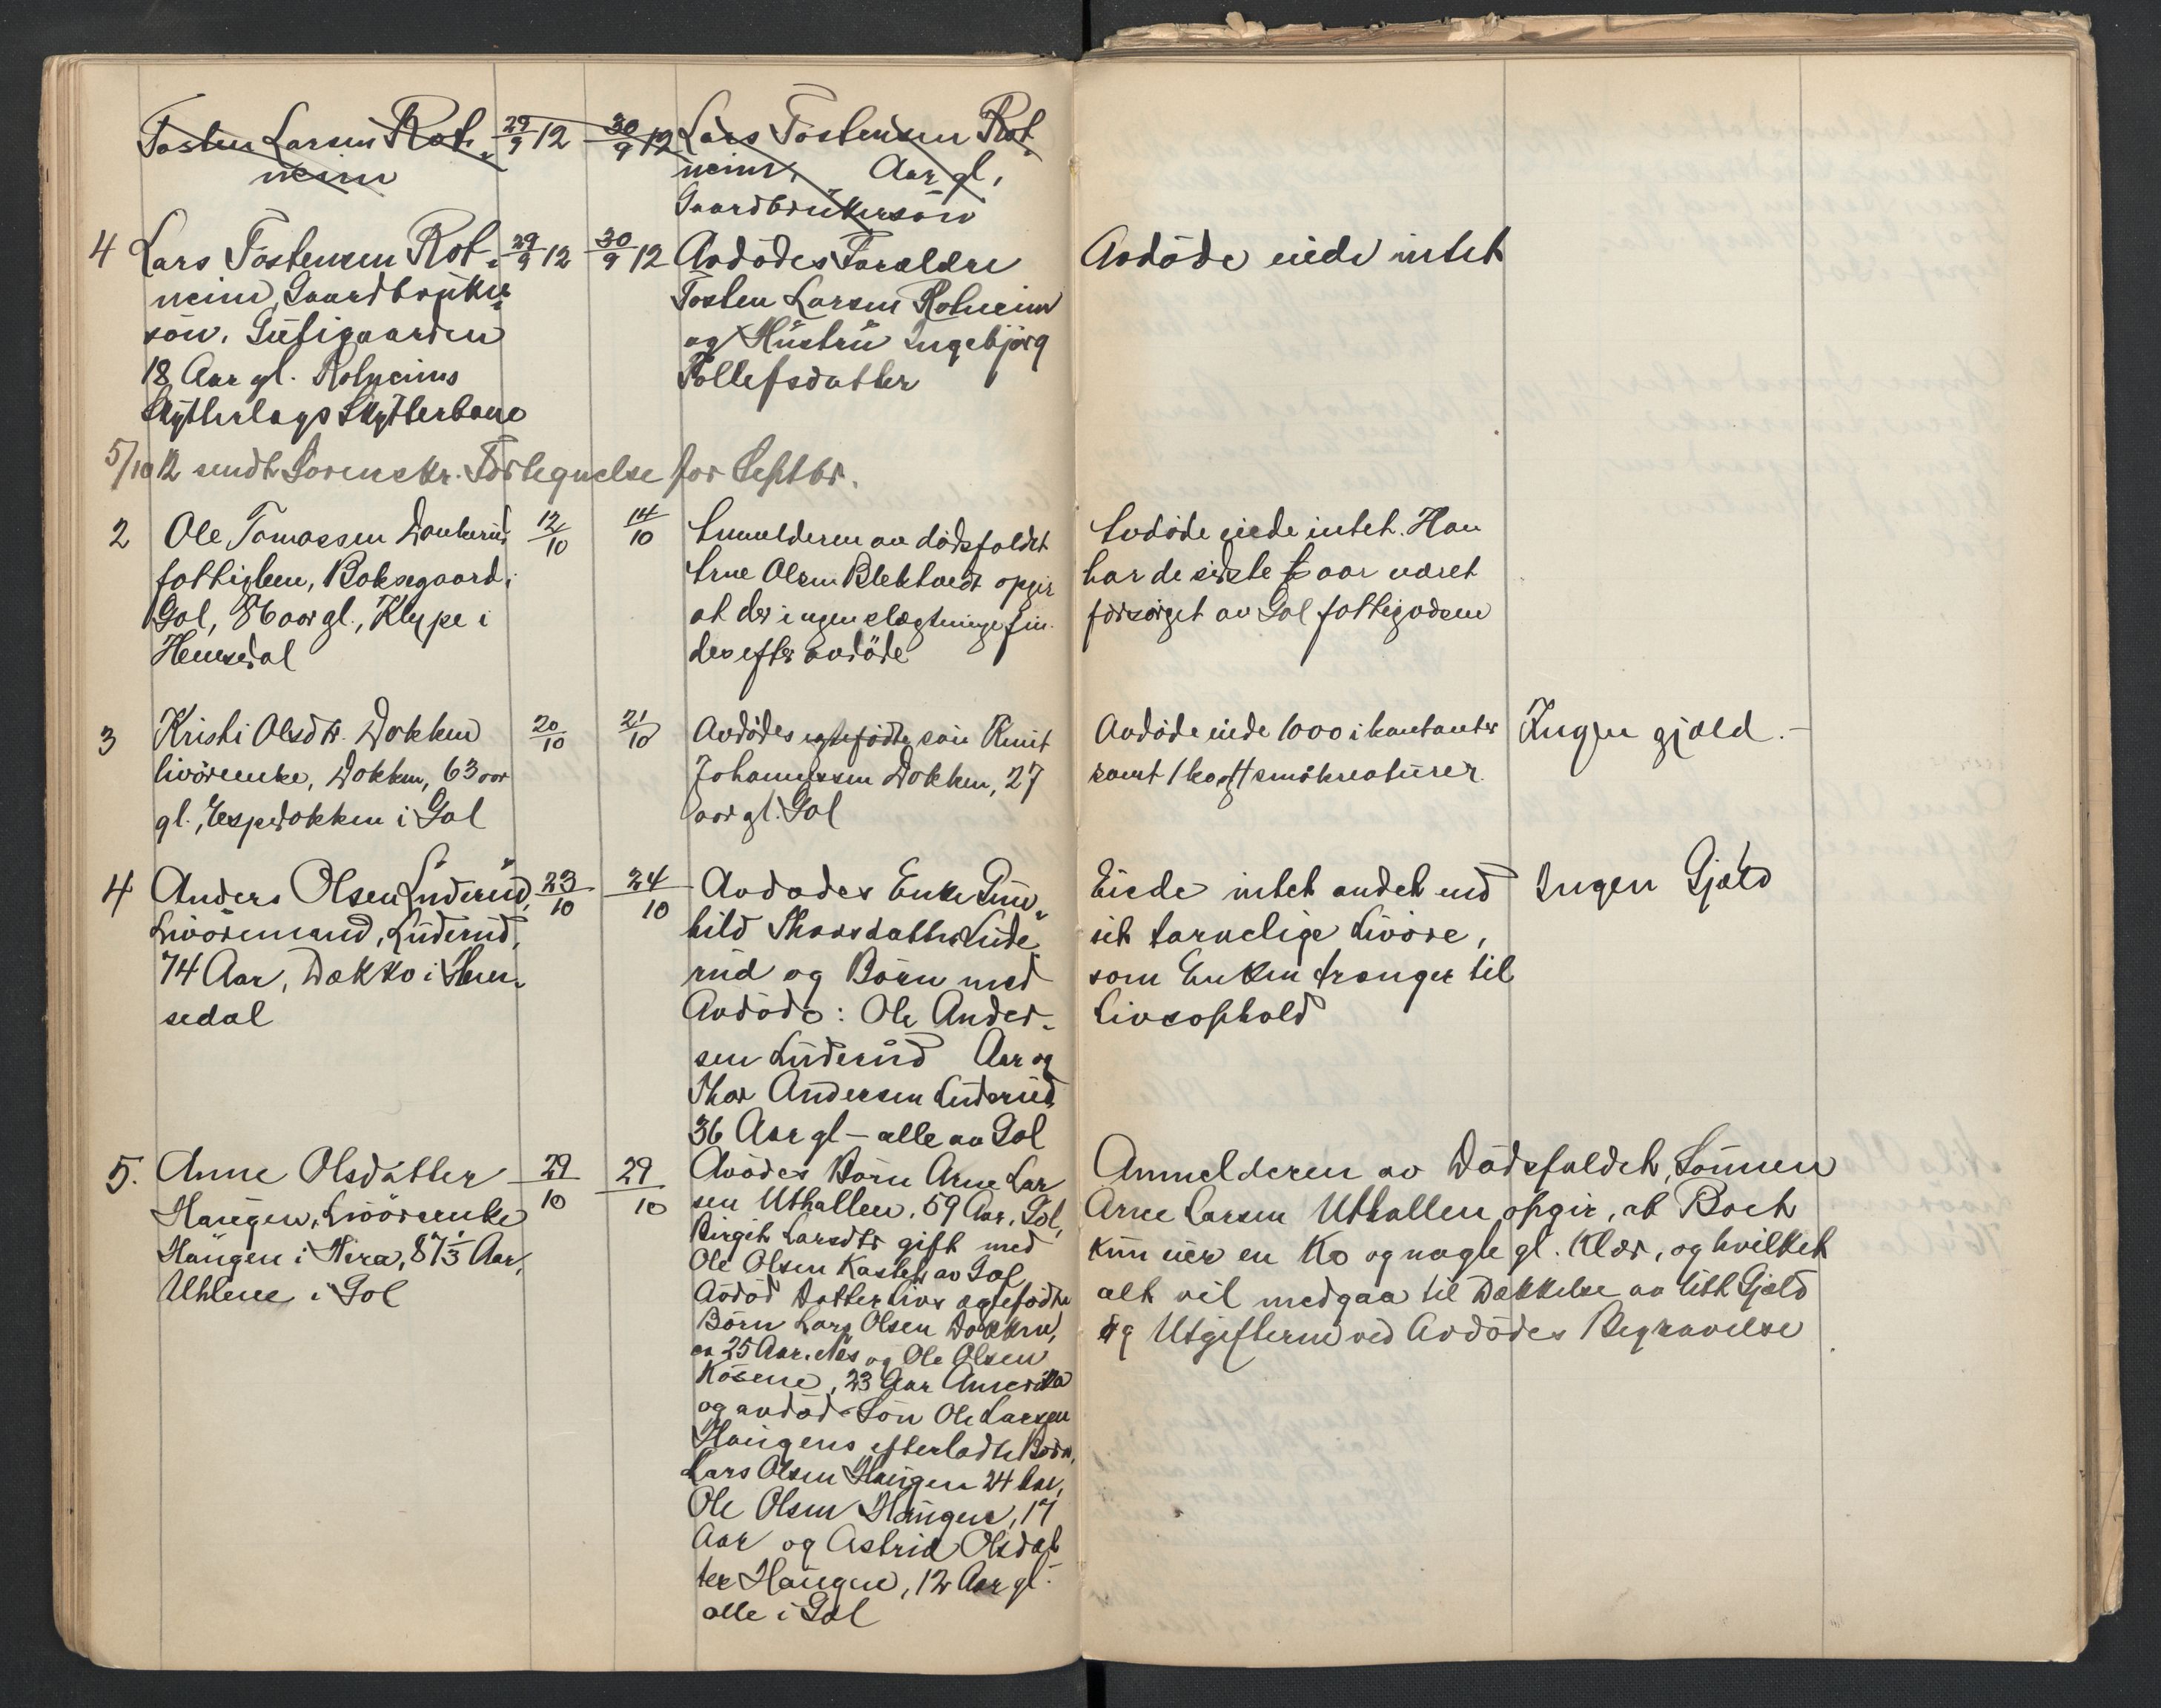 Tosten Larsen Rot-
neim
29/9 12
30/9 12
Lars Tostensen Rot-
neim, Aar gl,
Gaardbrukersön
4 Lars Tostensen Rot-
neim, Gaardbruker-
sön,
18 Aar gl. Rotneims
Skytterlags Skytterbane
29/9 12
30/9 12
Avdödes Forældre
Tosten Larsen Rotneim
og Hustru Ingebjörg
Tollefsdatter
Avdöde eiede intet
5/10 12 sendt Sorenskr. Fortegnelse for Septbr.
2 Ole Tomassen
fattiglem, Baksegaard i
Gol, 86 aar gl., Klype i
Hemsedal
12/10
14/10
Anmelderen av dödsfaldet
Arne Olsen opgir
at der ingen slægtninge fin-
des efter avdöde
Avdöde eiede intet. Han
har de sidste aar været
forsörget av Gol fattigvæsen
3 Kristi Olsdtr. Dokken
livörenke, Dokken, 63 aar
gl., Espedokken i Gol
20/10
21/10
Avdödes egtefödte sön Knut
Johannessen Dokken, 27
aar gl. Gol
Avdöde eiede 1000 i kontanter
samt 1 ko og 4 smökreaturer
Ingen gjæld.-
4 Anders Olsen Luderud,
Livöremand, Luderud,
74 Aar, Dokko i Hem-
sedal
23/10
24/10
Avdödes Enke Gun-
hild Thorsdatter Lude-
rud og Börn med
Avdöde: Ole Ander-
sen Luderud Aar og
Thor Andersen Luderud
36 Aar gl - alle av Gol
Eiede intet andet end
sit tarvelige Livöre,
som Enken trænger til
Livsophold
Ingen Gjæld
5. Anne Olsdatter
Haugen, Livörenke
Haugen i Hera, 87 1/3 Aar,
Uhlene i Gol
29/10
29/10
Avdödes Börn Arne Lar
sen Uthallen, 59 Aar, Gol,
Birgit Larsdtr gift med
Ole Olsen Kasteb av Gol
Avdöd Datter Livs egtefödte
Börn Lars Olsen Dokken,
ca 25 Aar, Nes og Ole Olsen
23 Aar Amerika
og avdöd Sön Ole Larsen
Haugens efterladte Börn,
Lars Olsen Haugen 24 Aar,
Ole Olsen Haugen, 17
Aar og Astrid Olsdat
ter Haugen, 12 Aar gl.
alle i Gol
Anmelderen av Dödsfaldet, Sönnen
Arne Larsen Uthallen opgir, at Boet
kun eier en Ko og nogle gl. Klær, og hvilket
alt vil medgaa til Dækkelse av litt Gjæld
og Utgifterne ved Avdödes Begravelse